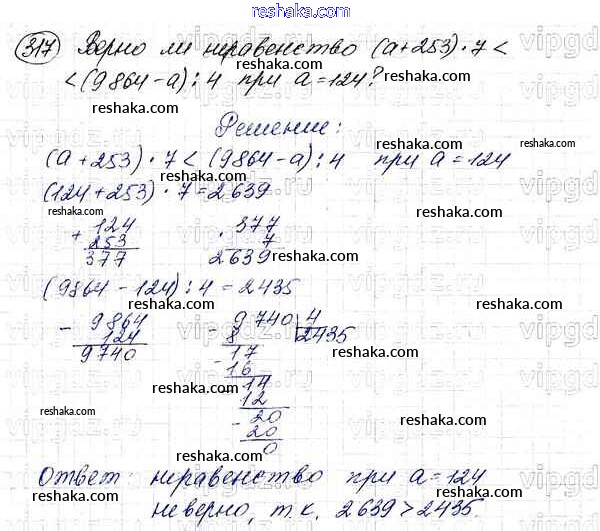 reshaka.com
317 Верно ли неравенство (a+253)·7<
<(9864-a):4 при a=124?
reshaka.com reshaka.com
Решение:
reshaka.com
(a+253)·7<(9864-a):4 при a=124
reshaka.com reshaka.com reshaka.com
(124+253)·7=2639
reshaka.com
+ 124 · 377
253 7
377 2639
reshaka.com reshaka.com reshaka.com
(9864-124):4=2435
reshaka.com
- 9864 - 9740 4
124 8 2435
9740 17
reshaka.com reshaka.com
- 16
reshaka.com
14
reshaka.com
12
- 20
reshaka.com
20
reshaka.com
0
reshaka.com
Ответ: неравенство при a=124
reshaka.com
неверно, т.к. 2639>2435.
reshaka.com reshaka.com